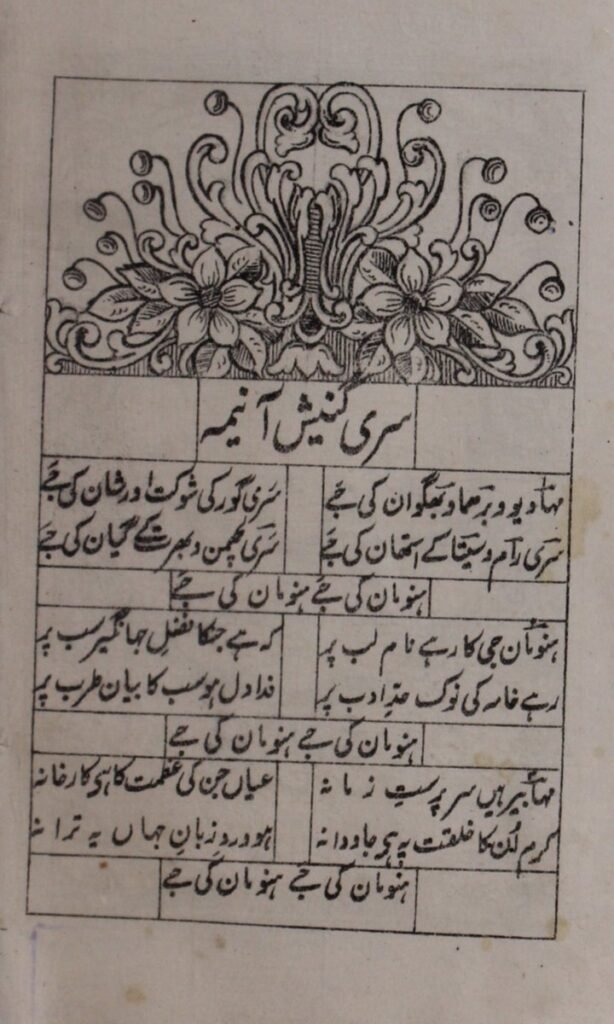 سری گنیش آنیمہ
مہادیو و برھما و بھگوان کی جَے سَری گور کی شوکت اور شان کی جَے
سری رآم و سیتا کے استھان کی جَے سَری لچھمن و بھرت کے گیان کی جَے
ہنومان کی جَے ہنومان کی جَے
ہنومان جی کا رہے نام لب پر کہ ہے جنکا فضلِ جہانگیر سب پر
رہے خامہ کی نوک حدِّ ادب پر فدا دل ہو سب کا بیان طرب پر
ہنومان کی جَے ہنومان کی جَے
مہابیر ہیں سر پرستِ زمانہ عیاں جن کی عظمت کا ہی کارخانہ
کرم اُن کا خلقت پہ ہی جاودانہ ہو وردِ زبانِ جہاں یہ ترانہ
ہنومان کی جَے ہنومان کی جَے